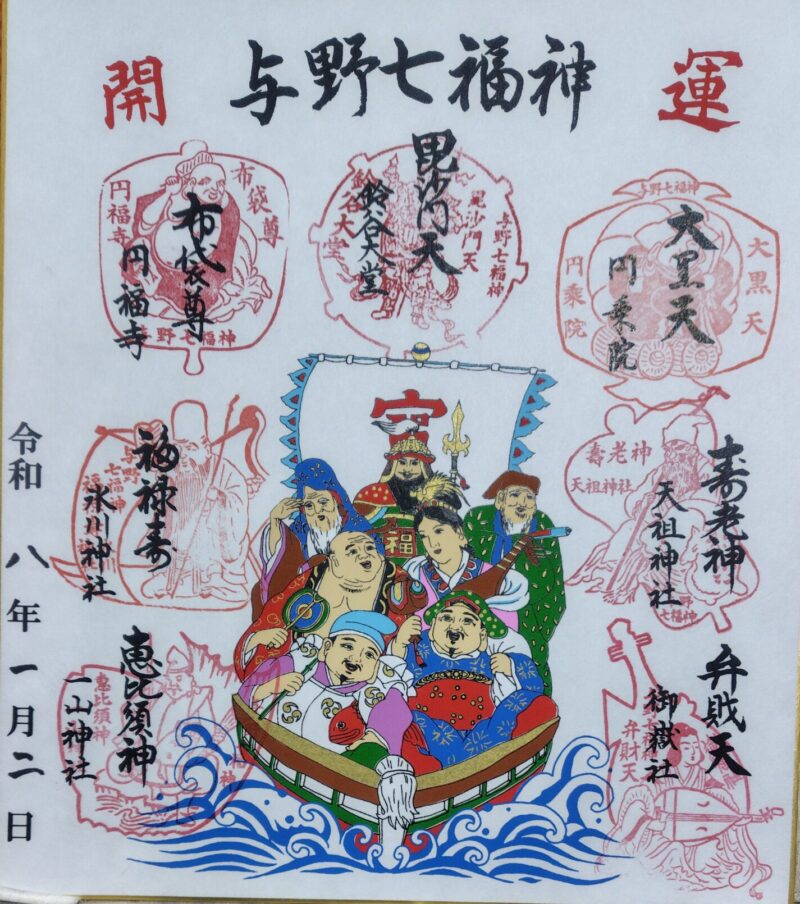 開 与野七福神 運
大黒天
円乗院
与野七福神
大黒天
円乗院
毘沙門天
鈴谷大堂
与野七福神
毘沙門天
鈴谷大堂
布袋尊
円福寺
布袋尊
円福寺
与野七福神
寿老神
天祖神社
壽老神
天祖神社
七福神
福禄寿
氷川神社
与野
七福神
弁財天
御嶽社
弁財天
恵比須神
一山神社
恵比須神
宝
福
令和 八年一月二日